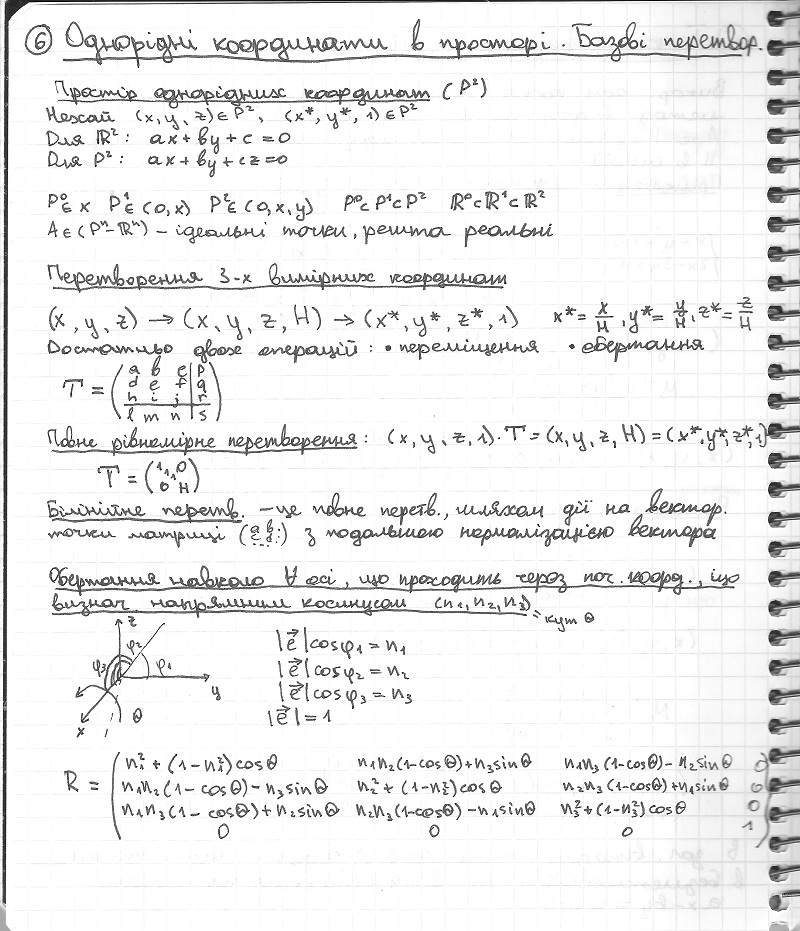 6 Однорідні координати в просторі. Базові перетвор.
Простір однорідних координат (P²)
Нехай (x, y, z) ∈ P², (x*, y*, 1) ∈ P²
Для ℝ²: ax + by + c = 0
Для P²: ax + by + cz = 0
P⁰ ∈ x P¹ ∈ (0, x) P² ∈ (0, x, y) P⁰ ⊂ P¹ ⊂ P² ℝ⁰ ⊂ ℝ¹ ⊂ ℝ²
A ∈ (Pⁿ - ℝⁿ) – ідеальні точки, решта реальні
Перетворення 3-х вимірних координат
(x, y, z) → (x, y, z, H) → (x*, y*, z*, 1) x* = x/H, y* = y/H, z* = z/H
Достатньо двох операцій: • переміщення • обертання
T = (a b c | p
d e f | q
h i j | r
l m n | s)
Повне рівномірне перетворення: (x, y, z, 1) · T = (x, y, z, H) = (x*, y*, z*, 1)
T = (1 1 1 0
0 H)
Білінійне перетв. – це повне перетв., шляхом дії на вектор.
точки матриці (a b : c d :) з подальшою нормалізацією вектора
Обертання навколо ∀ осі, що проходить через поч. коорд., що
визнач напрямним косинусом (n₁, n₂, n₃) = кут θ
z
φ₂
φ₃ φ₁
y
x θ
|e⃗| cos φ₁ = n₁
|e⃗| cos φ₂ = n₂
|e⃗| cos φ₃ = n₃
|e⃗| = 1
R = (n₁² + (1 - n₁²) cos θ n₁n₂(1 - cos θ) + n₃ sin θ n₁n₃(1 - cos θ) - n₂ sin θ 0
n₁n₂(1 - cos θ) - n₃ sin θ n₂² + (1 - n₂²) cos θ n₂n₃(1 - cos θ) + n₁ sin θ 0
n₁n₃(1 - cos θ) + n₂ sin θ n₂n₃(1 - cos θ) - n₁ sin θ n₃² + (1 - n₃²) cos θ 0
0 0 0 1)